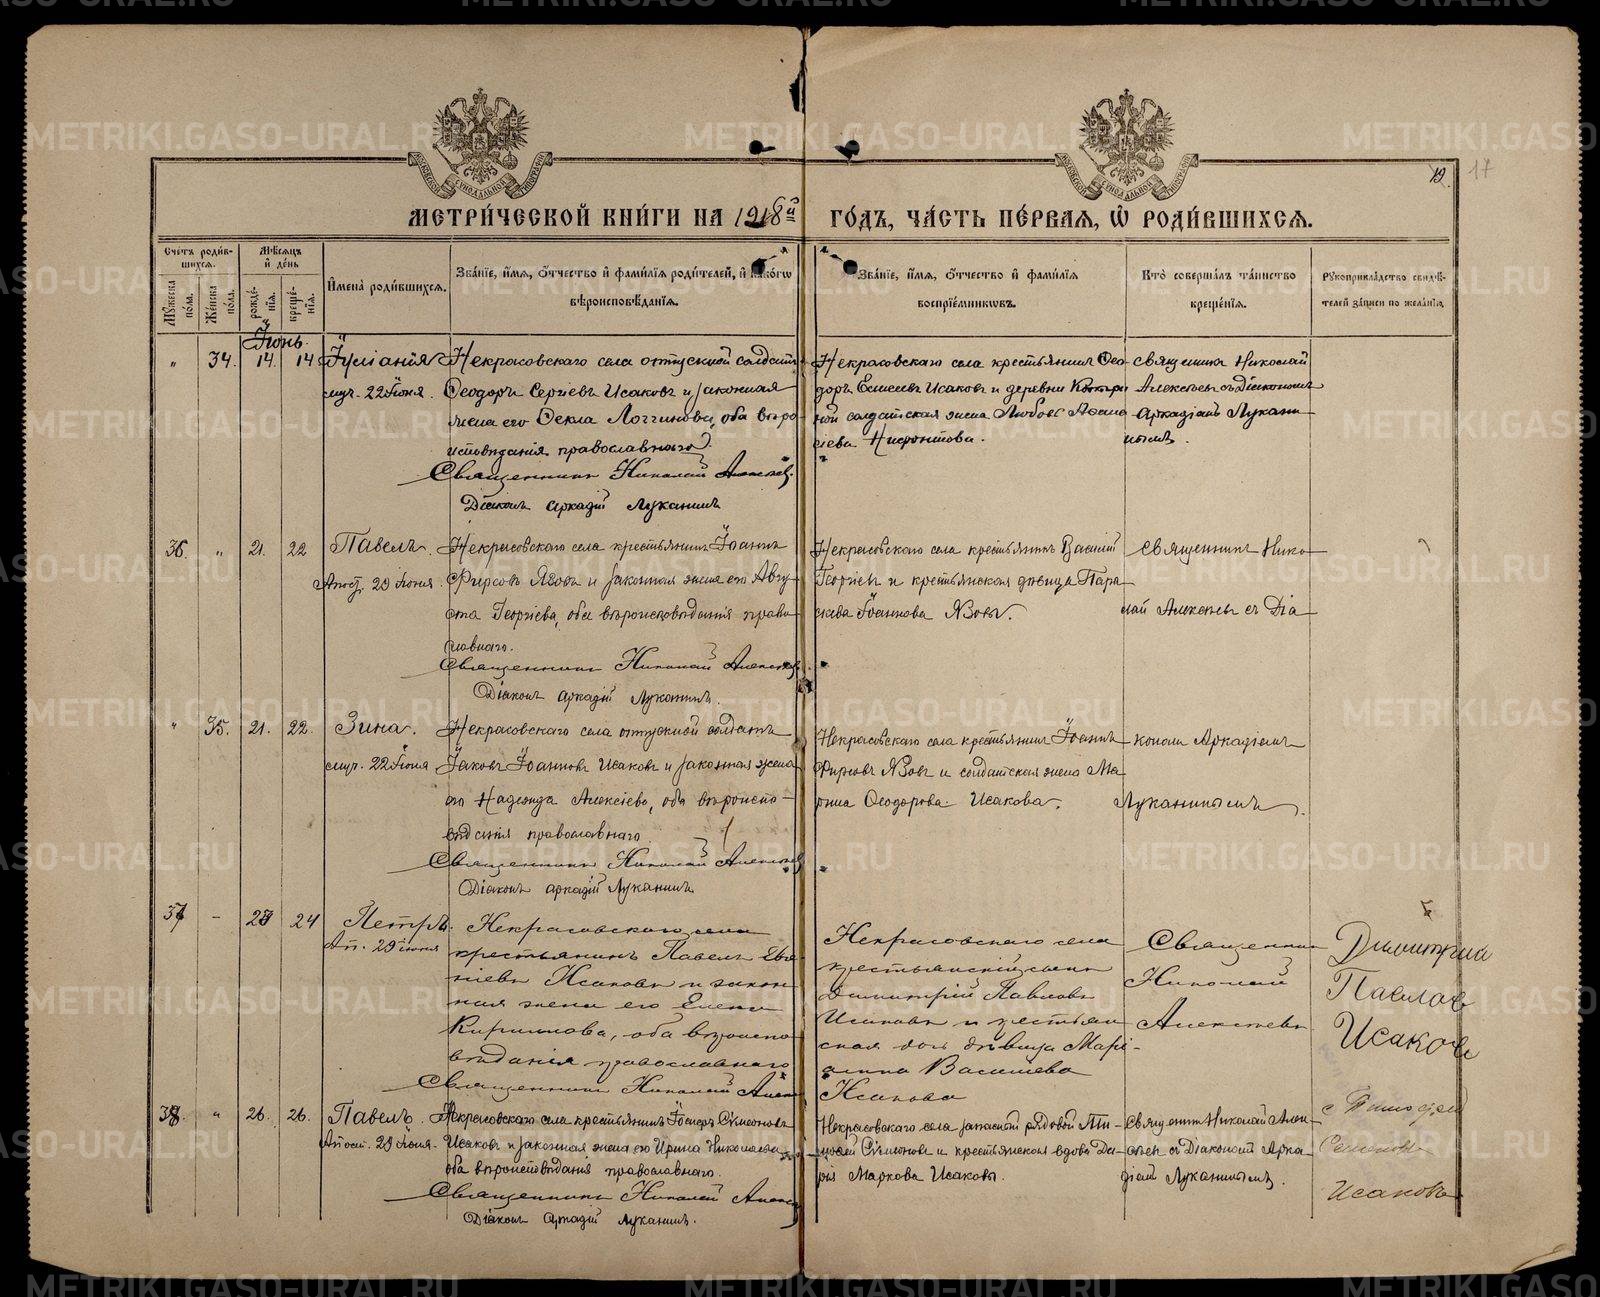 МЕТРИ́ЧЕСКОЙ КНИ́ГИ НА 1918й ГО́ДЪ, ЧА́СТЬ ПЕ́РВАЯ, Ѡ РОДИ́ВШИХСЯ.
19. 17
Сче́тъ роди́в-
шихся.
Му́жеска по́ла.
Же́нска по́ла.
Мѣ́сяцъ и҆ де́нь
рожде́-
нїя.
креще́-
нїя.
И҆мена̀ роди́вшихся.
Зва́нїе, и҆́мя, ѻ҆́тчество и҆ фами́лїя роди́телей, и҆ како́гѡ
вѣроисповѣ́данїя.
Зва́нїе, и҆́мя, ѻ҆́тчество и҆ фами́лїя
воспрїе́мникѡвъ.
Кто̀ соверша́лъ та́инство
креще́нїя.
Рукоприкла́дство свидѣ́-
телей за́писи по жела́нїю.
Іюнь.
" 34. 14. 14 Іуліанія
муч. 22 Іюня.
Некрасовскаго села отпускной солдатъ
Ѳеодоръ Сергіевъ Исаковъ и законная
жена его Ѳекла Логгинова, оба вѣро-
исповѣданія православнаго.
Священникъ Николай Алексѣев.
Діаконъ Аркадій Луканинъ
Некрасовскаго села крестьянинъ Ѳео-
доръ Исаковъ и деревни
ной солдатская жена Любовь
Священникъ Николай
Алексѣевъ съ Діакономъ
Аркадіемъ Лукани-
нымъ.
36. " 21. 22 Павелъ.
Апост. 29 Іюня.
Некрасовскаго села крестьянинъ Іоаннъ
Фирсовъ Язовъ и законная жена его Авгу-
ста Георгіева, оба вѣроисповѣданія право-
славнаго.
Священникъ Николай Алексѣев
Діаконъ Аркадій Луканинъ.
Некрасовскаго села крестьянинъ Василій
Георгіевъ и крестьянская дѣвица Пара-
скева Іоаннова Язова.
Священникъ Нико-
лай Алексѣевъ съ Діа-
" 35. 21. 22. Зина.
муч. 22 Іюня
Некрасовскаго села отпускной солдатъ
Іаковъ Іоанновъ Исаковъ и законная жена
его Надежда Алексіева, оба вѣроиспо-
вѣданія православнаго
Священникъ Николай Алексѣев
Діаконъ Аркадій Луканинъ
Некрасовскаго села крестьянинъ Іоаннъ
Фирсовъ Язовъ и солдатская жена Ма-
рина Ѳеодорова Исакова.
кономъ Аркадіемъ
Луканинымъ.
37 - 23 24 Петръ.
Ап. 29 іюня
Некрасовскаго села
крестьянинъ Павелъ
Исаковъ и закон-
ная жена его Елена
Кириллова, оба вѣроиспо-
вѣданія православнаго
Священникъ Николай Алекс
Некрасовскаго села
крестьянскій сынъ
Димитрій Павловъ
Исаковъ и крестьян-
ская дочь дѣвица Марі-
анна Васильева
Исакова
Священникъ
Николай
Алексѣевъ
Димитрий
Павлов
Исаков
38. " 26. 26. Павелъ.
Апост. 29 Іюня.
Некрасовскаго села крестьянинъ Сѵмеоновъ
Исаковъ и законная жена его Ирина Николаева
оба вѣроисповѣданія православнаго.
Священникъ Николай Алексѣ
Діаконъ Аркадій Луканинъ.
Некрасовскаго села запасный рядовой Ти-
моѳей Сѵмеоновъ и крестьянская вдова Да-
рія Маркова Исаковы.
Священникъ Николай Алек-
сѣевъ съ Діакономъ Арка-
діемъ Луканинымъ.
Тимофей
Семенов
Исаков
METRIKI.GASO-URAL.RU